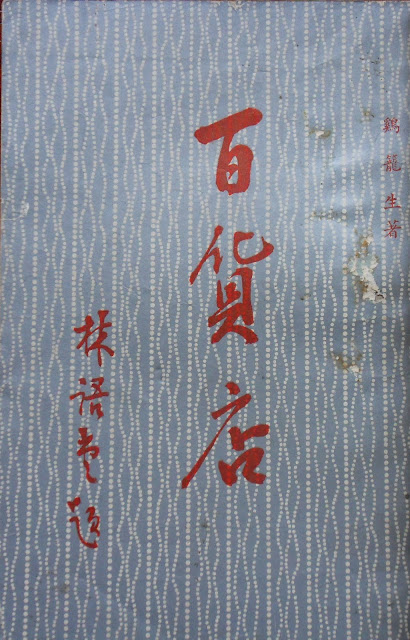 鷄籠生著
百貨店
林語堂題